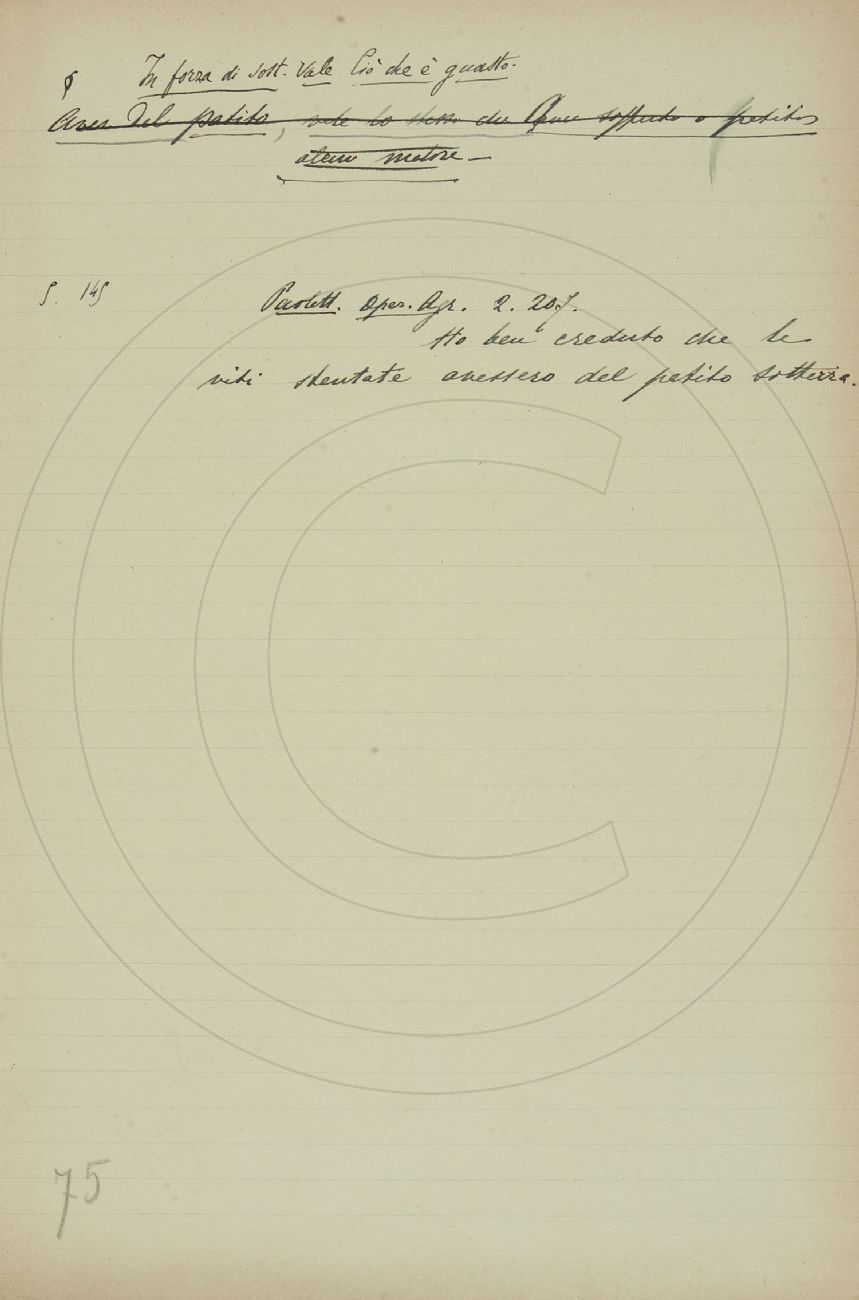 § In forza di sost. Vale Ciò che è guasto.
Aver del patito, vale lo stesso che Aver sofferto o patito
alcun malore —
§. 145
Paolett. Oper. Agr. 2. 207.
Ho ben creduto che le
viti stentate avessero del patito sotterra.
75